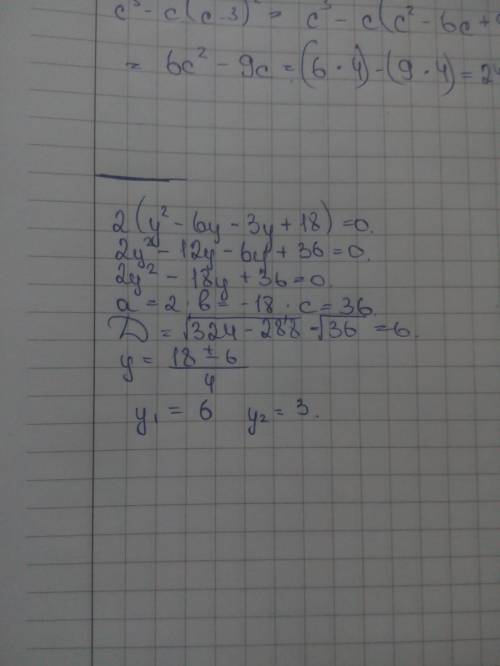 c³ - c(c-3)² = c³ - c(c² - 6c +
= 6c² - 9c = (6 · 4) - (9 · 4) = 24
2(y² - 6y - 3y + 18) = 0.
2y² - 12y - 6y + 36 = 0.
2y² - 18y + 36 = 0.
a = 2 · b = -18 · c = 36.
D = √324 - 288 - √36 = 6.
y = (18 ± 6)/4
y₁ = 6 y₂ = 3.